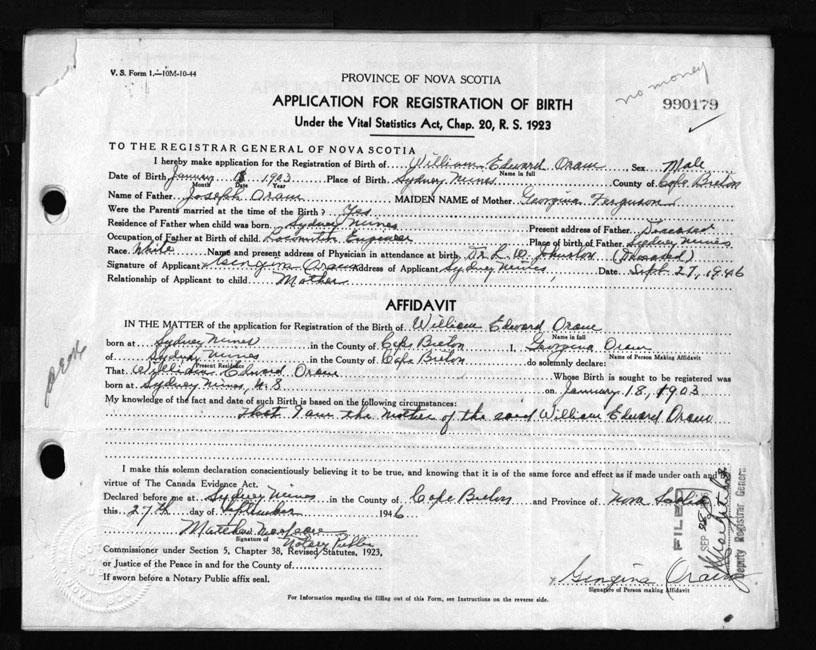 V. S. Form 1.—10M-10-44
no money
PROVINCE OF NOVA SCOTIA
990179
APPLICATION FOR REGISTRATION OF BIRTH
Under the Vital Statistics Act, Chap. 20, R. S. 1923
TO THE REGISTRAR GENERAL OF NOVA SCOTIA
I hereby make application for the Registration of Birth of William Edward Oram Sex Male
Name in full
Date of Birth January 18 1903 Place of Birth Sydney Mines County of Cape Breton
Month Date Year
Name of Father Joseph Oram MAIDEN NAME of Mother Georgina Ferguson
Were the Parents married at the time of the Birth? Yes
Residence of Father when child was born Sydney Mines Present address of Father Deceased
Occupation of Father at Birth of child Engineer Place of birth of Father Sydney Mines
Race White Name and present address of Physician in attendance at birth Dr. L. W. Johnston (Deceased)
Signature of Applicant Georgina Oram Address of Applicant Sydney Mines, Date Sept 27, 1946
Relationship of Applicant to child Mother
AFFIDAVIT
IN THE MATTER of the application for Registration of the Birth of William Edward Oram
Name in full
born at Sydney Mines in the County of Cape Breton I, Georgina Oram
Name of Person Making Affidavit
of Sydney Mines in the County of Cape Breton do solemnly declare:
Present Residence
That William Edward Oram Whose Birth is sought to be registered was
born at Sydney Mines, N.S on January 18, 1903
My knowledge of the fact and date of such Birth is based on the following circumstances:
That I am the mother of the said William Edward Oram
I make this solemn declaration conscientiously believing it to be true, and knowing that it is of the same force and effect as if made under oath and by
virtue of The Canada Evidence Act.
Declared before me at Sydney Mines in the County of Cape Breton and Province of Nova Scotia
this 27th day of September 1946
Matthew
Signature of Notary Public
Commissioner under Section 5, Chapter 38, Revised Statutes, 1923,
or Justice of the Peace in and for the County of
If sworn before a Notary Public affix seal.
Georgina Oram
Signature of Person making Affidavit
For Information regarding the filling out of this Form, see Instructions on the reverse side.
FILED
SEP 28
Deputy Registrar General